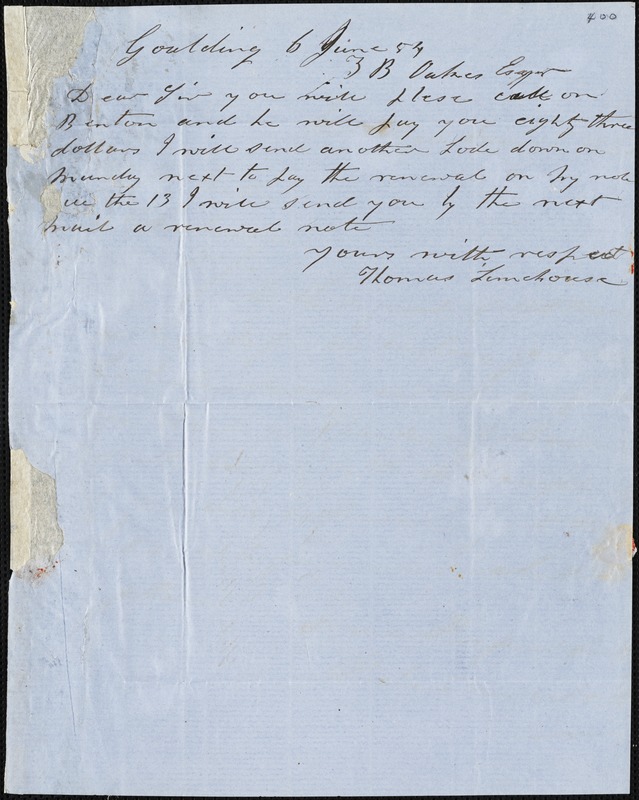 400
Goulding 6 June 54
Z B Oakes Esqr
Dear Sir you will plese call on
Benton and he will pay you eighty three
dollars I will send another Lode down on
munday next to pay the renewal on my note
due the 13 I will send you by the next
mail a renewal note
yours with respect
Thomas Limehouse